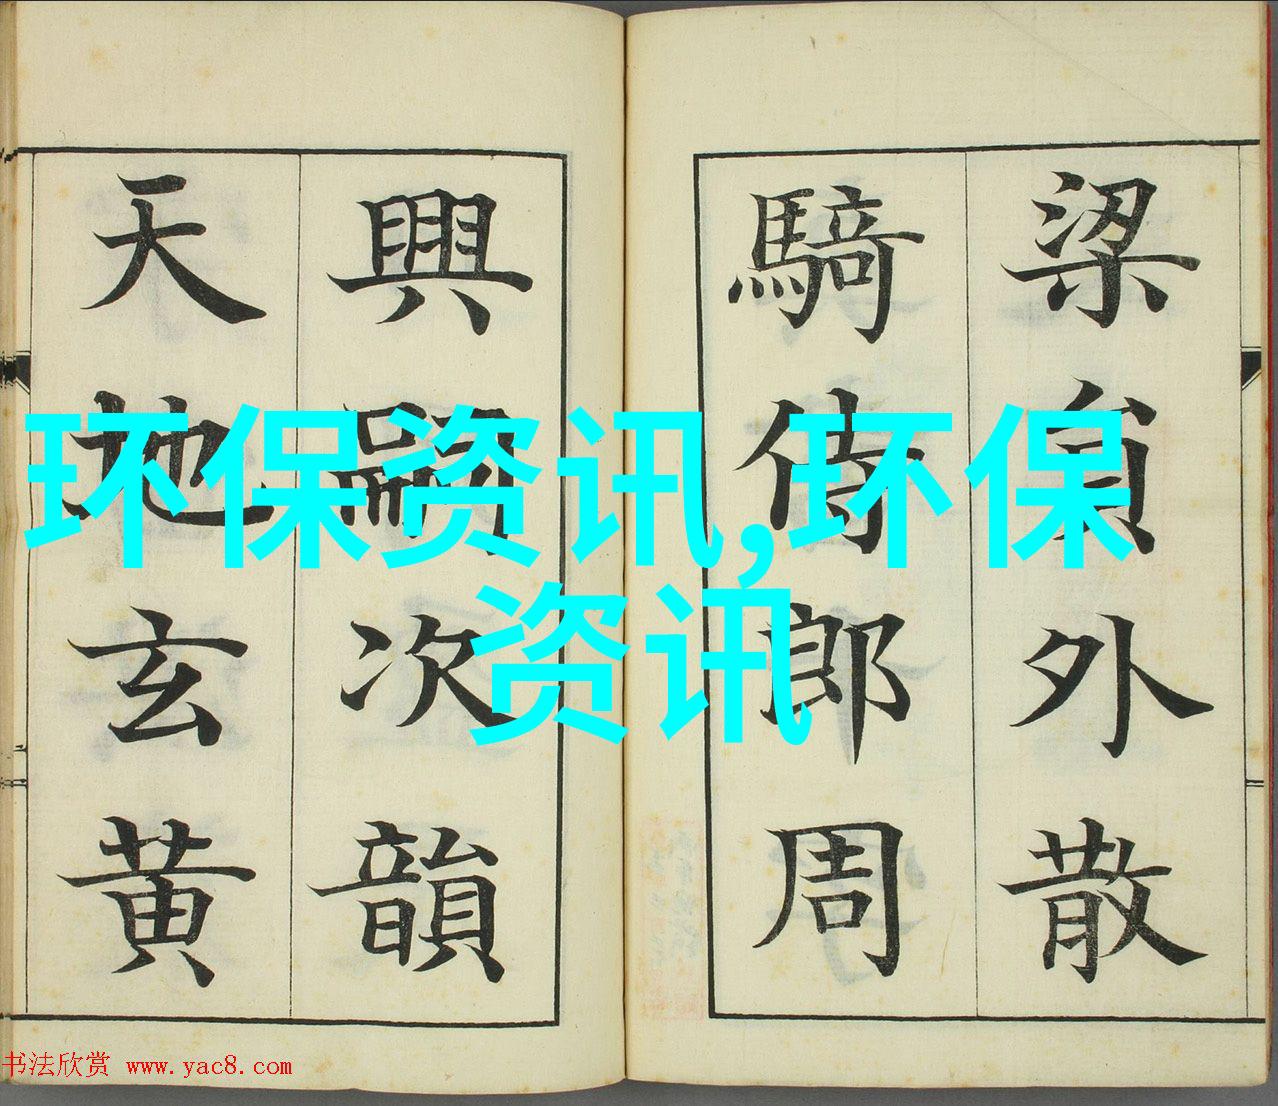 梁員外散
騎侍郎周
興嗣次韻
天地玄黃
环保资讯,环保
资讯
书法欣赏 www.yac8.com